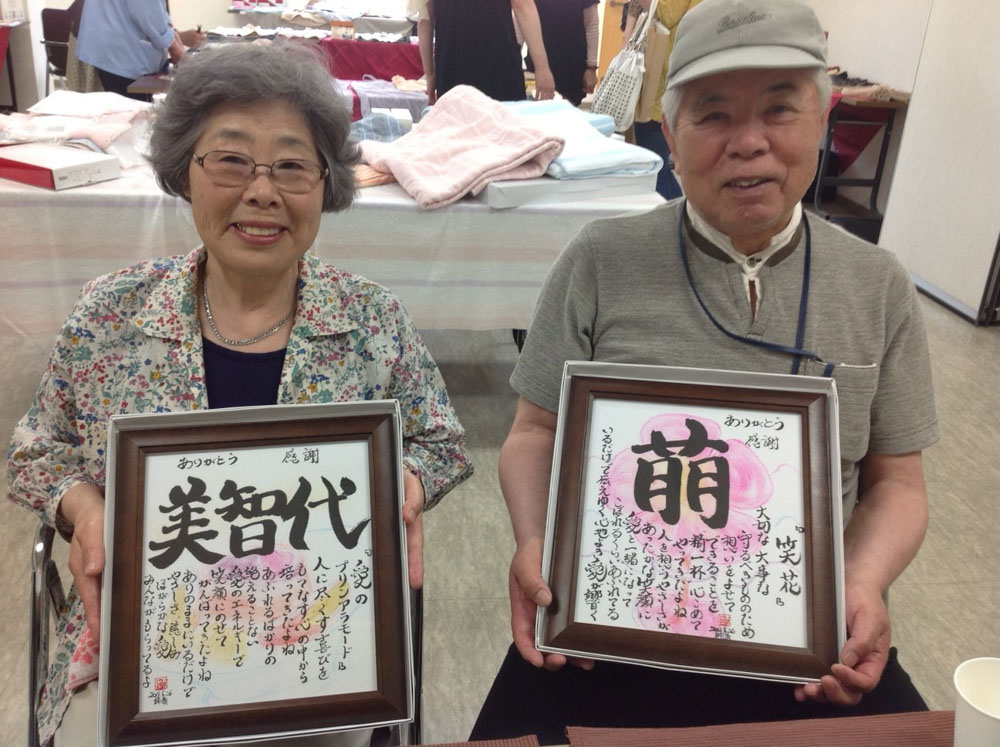 Borsalino
ありがとう 感謝
美智代
『愛の
プリンアラモード』
人に尽くす喜びを
もてなす心の中から
培ってきたよね
あふれるばかりの
絶えることない
愛のエネルギーで
笑顔にのせて
がんばってきたよね
ありのままにいるだけで
やさしさ慈しみ
ほがらかな愛
みんながもらってるよ
ありがとう
感謝
萌
『笑花』
大切な大事な
守るべきもののため
想いをよせて
できることを
精一杯心こめて
やってきたよね
あったかな笑顔に
人を想うやさしさが
愛と一緒になって
こぼれるくらいあふれてる
いるだけで伝えゆく心地よう愛響く